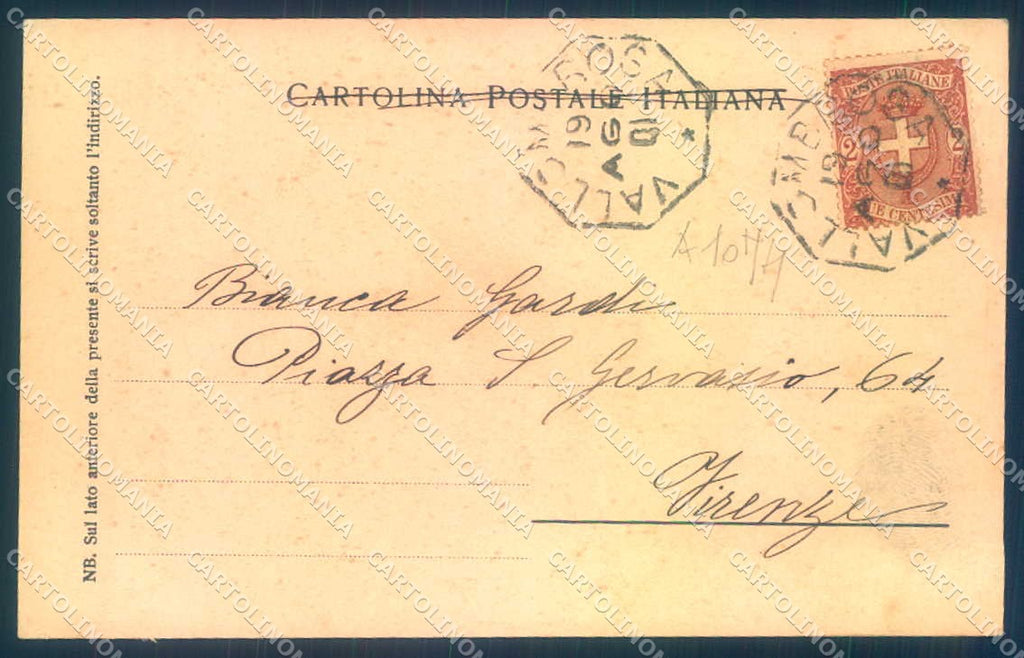 CARTOLINA POSTALE ITALIANA
VALLOMBROSA
19
AGO
01
POSTE ITALIANE
2 2
DUE CENTESIMI
VALLOMBROSA
19
AGO
01
A1074
Bianca Gardi
Piazza S. Gervasio, 64
Firenze
NB. Sul lato anteriore della presente si scrive soltanto l'indirizzo.
CARTOLINOMANIA